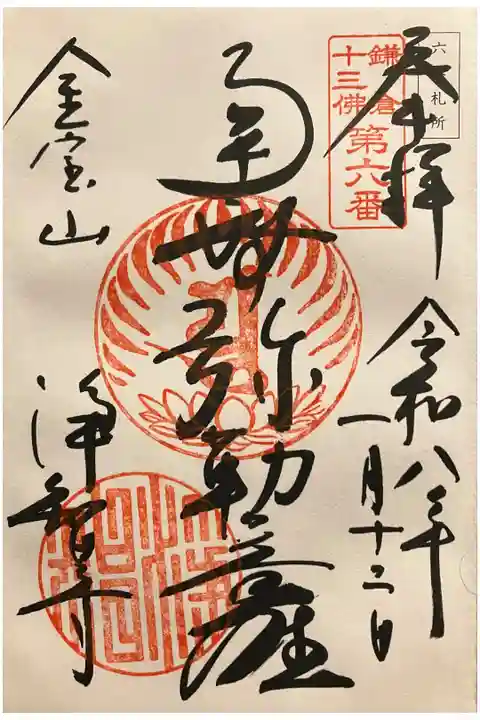 六
札
所
鎌倉
十三佛
第六番
奉拝
令和八年
一月十二日
南無弥勒菩薩
金宝山
浄智寺